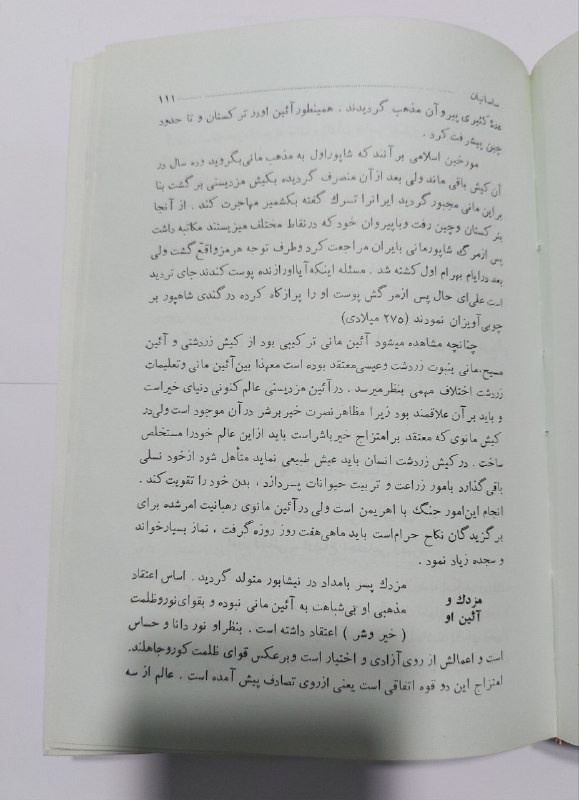 ساسانیان ۱۱۱
عدهٔ کثیری پیرو آن مذهب گردیدند . همینطور آئین او در ترکستان و تا حدود
چین پیشرفت کرد .
مورخین اسلامی بر آنند که شاپور اول به مذهب مانی بگروید و ده سال در
آن کیش باقی ماند ولی بعد از آن منصرف گردیده بکیش مزدیسنی برگشت بنا
بر این مانی مجبور گردید ایران را ترك گفته بکشمیر مهاجرت کند . از آنجا
بترکستان و چین رفت و با پیروان خود که در نقاط مختلف میزیستند مکاتبه داشت
پس از مرگ شاپور مانی بایران مراجعت کرد و طرف توجه هرمز واقع گشت ولی
بعد در ایام بهرام اول کشته شد . مسئله اینکه آیا او را زنده پوست کندند جای تردید
است علی‌ای حال پس از مرگش پوست او را پر از کاه کرده در گندی شاهپور بر
چوبی آویزان نمودند (۲۷۵ میلادی)
چنانچه مشاهده میشود آئین مانی ترکیبی بود از کیش زردشتی و آئین
مسیح، مانی بنبوت زردشت و عیسی معتقد بوده است معهذا بین آئین مانی و تعلیمات
زردشت اختلاف مهمی بنظر میرسد . در آئین مزدیسنی عالم کنونی دنیای خیر است
و باید بر آن علاقمند بود زیرا مظاهر نصرت خیر بر شر در آن موجود است ولی در
کیش مانوی که معتقد بر امتزاج خیر باشر است باید از این عالم خود را مستخلص
ساخت . در کیش زردشت انسان باید عیش طبیعی نماید متأهل شود از خود نسلی
باقی گذارد بامور زراعت و تربیت حیوانات پردازد ، بدن خود را تقویت کند .
انجام این امور جنگ با اهریمن است ولی در آئین مانوی رهبانیت امر شده برای
برگزیدگان نکاح حرام است باید ماهی هفت روز روزه گرفت ، نماز بسیار خواند
و سجده زیاد نمود .
مزدك و
آئین او
مزدك پسر بامداد در نیشابور متولد گردید . اساس اعتقاد
مذهبی او بی‌شباهت به آئین مانی نبوده و بقوای نور و ظلمت
( خیر و شر ) اعتقاد داشته است . بنظر او نور دانا و حساس
است و اعمالش از روی آزادی و اختیار است و بر عکس قوای ظلمت کور و جاهلند.
امتزاج این دو قوه اتفاقی است یعنی از روی تصادف پیش آمده است . عالم از سه